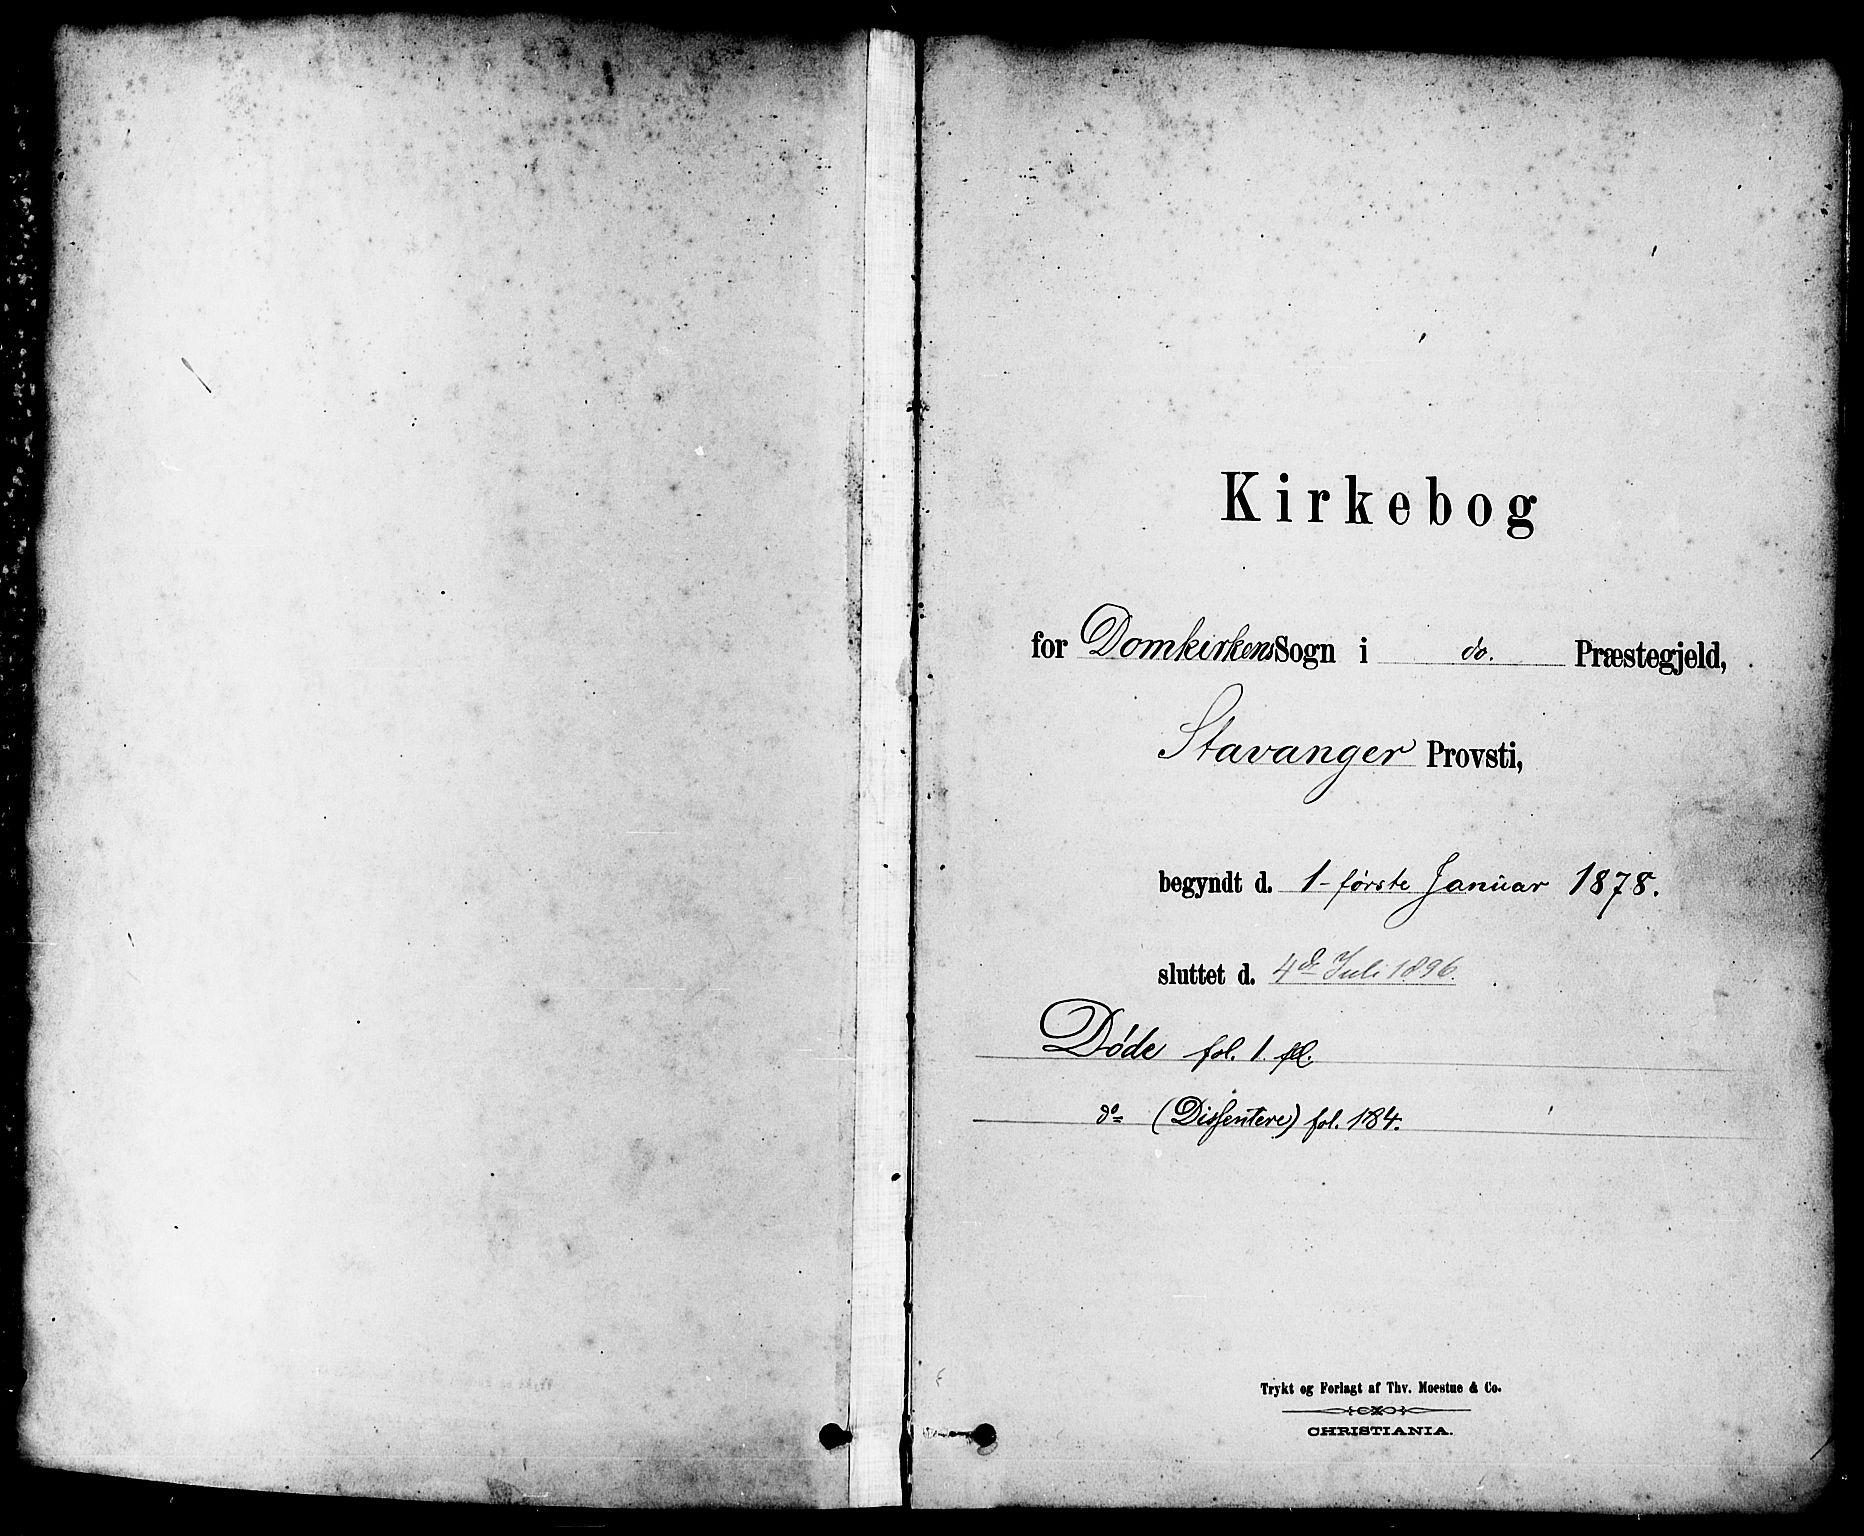 Kirkebog
for Domkirkens Sogn i do. Præstegjeld,
Stavanger Provsti,
begyndt d. 1- første Januar 1878.
sluttet d. 4de Juli 1896.
Døde fol. 1.
do (Dissentere) fol. 184.
Trykt og Forlagt af Thv. Moestue & Co.
CHRISTIANIA.